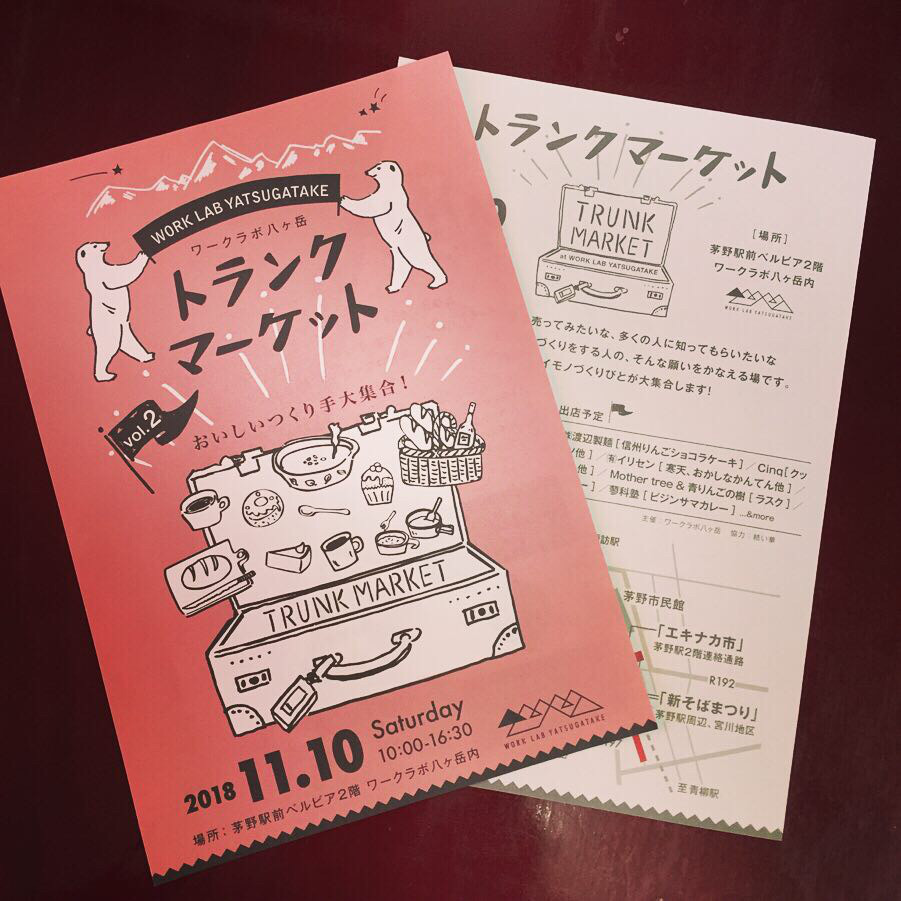 WORK LAB YATSUGATAKE
ワークラボ八ヶ岳
トランク
マーケット
vol.2
おいしいつくり手大集合!
TRUNK MARKET
2018 11.10 Saturday
10:00-16:30
WORK LAB YATSUGATAKE
場所:茅野駅前ベルビア2階 ワークラボ八ヶ岳内
トランクマーケット
TRUNK
MARKET
at WORK LAB YATSUGATAKE
[場所]
茅野駅前ベルビア2階
ワークラボ八ヶ岳内
WORK LAB YATSUGATAKE
売ってみたいな、多くの人に知ってもらいたいな
づくりをする人の、そんな願いをかなえる場です。
イモノづくりびとが大集合します!
出店予定
㈱渡辺製麺[信州りんごショコラケーキ]/Cinq[クッ
他]/㈲イリセン[寒天、おかしなかんてん他]/
他]/Mother tree & 青りんごの樹[ラスク]/
ー]/蓼科塾[ビジンサマカレー]...&more
主催:ワークラボ八ヶ岳 協力:結い華
諏訪駅
茅野市民館
「エキナカ市」
茅野駅2階連絡通路
R192
「新そばまつり」
茅野駅周辺、宮川地区
至青柳駅